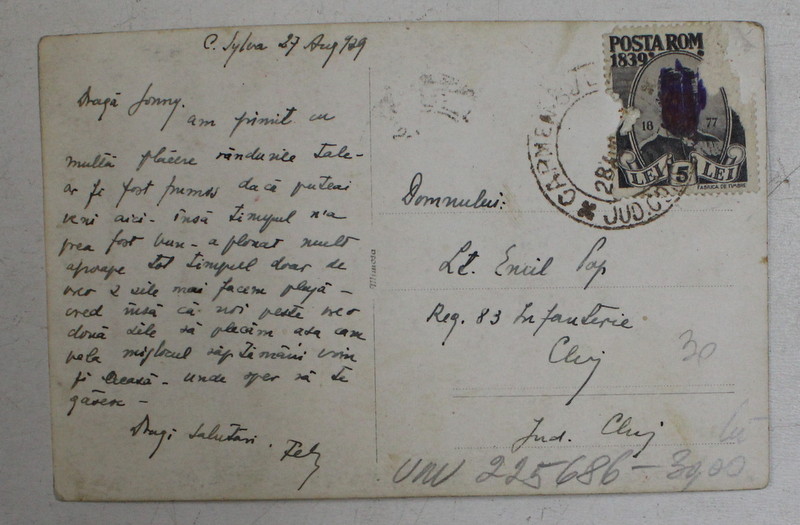 C. Sylva 27 Aug 939
Dragă Jonny.
am primit cu
multă plăcere rândurile tale-
ar fi fost frumos dacă puteai
veni aici - însă timpul n'a
prea fost bun - a plouat mult
aproape tot timpul doar de
vreo 2 zile mai facem plajă -
cred însă că noi peste vreo
două zile să plecăm asa cam
pela mijlocul săptămânii vom
fi acasă - unde sper să te
găsesc -
Dragi salutări.
Mimosa
POSTA ROM.
1839
18 77
LEI 5 LEI
FABRICA DE TIMBRE
CARMEN SYLVA
JUD. CO
Domnului:
Lt. Emil Pop
Reg. 83 Infanterie
Cluj
30
Jud. Cluj
225686 - 3900